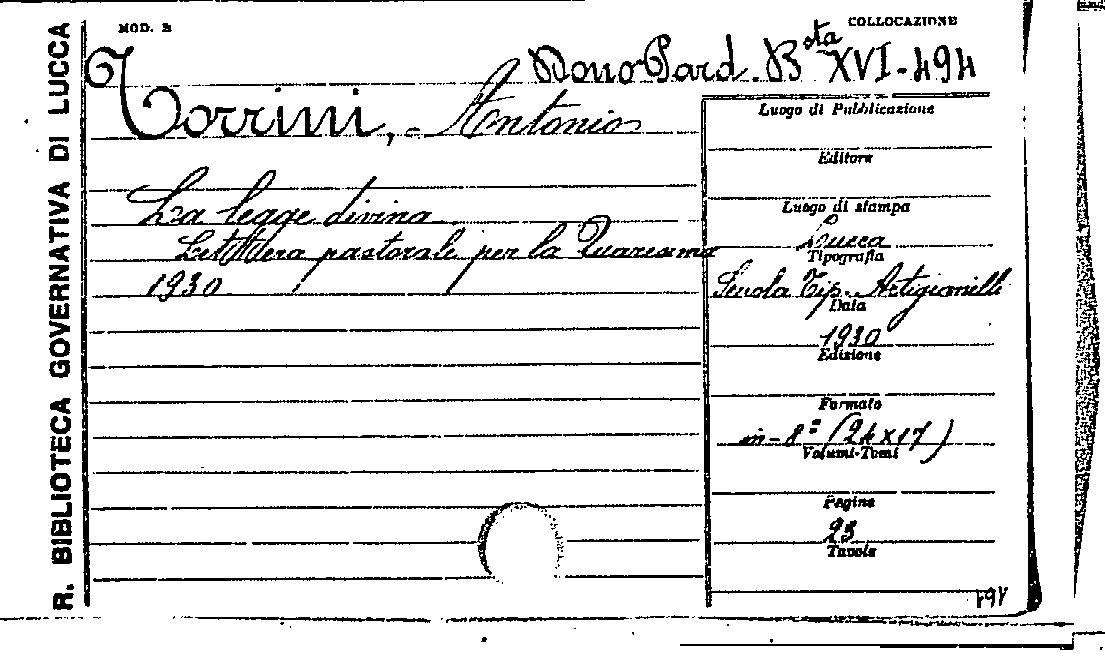 R. BIBLIOTECA GOVERNATIVA DI LUCCA
MOD. B
COLLOCAZIONE
Dono Pard. Bsta XVI-494
Torrini, - Antonio
La legge divina
Lettera pastorale per la Quaresima
1930
Luogo di Pubblicazione
Editore
Luogo di stampa
Lucca
Tipografia
Scuola Tip. Artigianelli
Data
1930
Edizione
Formato
in-8º (24x17)
Volumi-Tomi
Pagine
23
Tavole